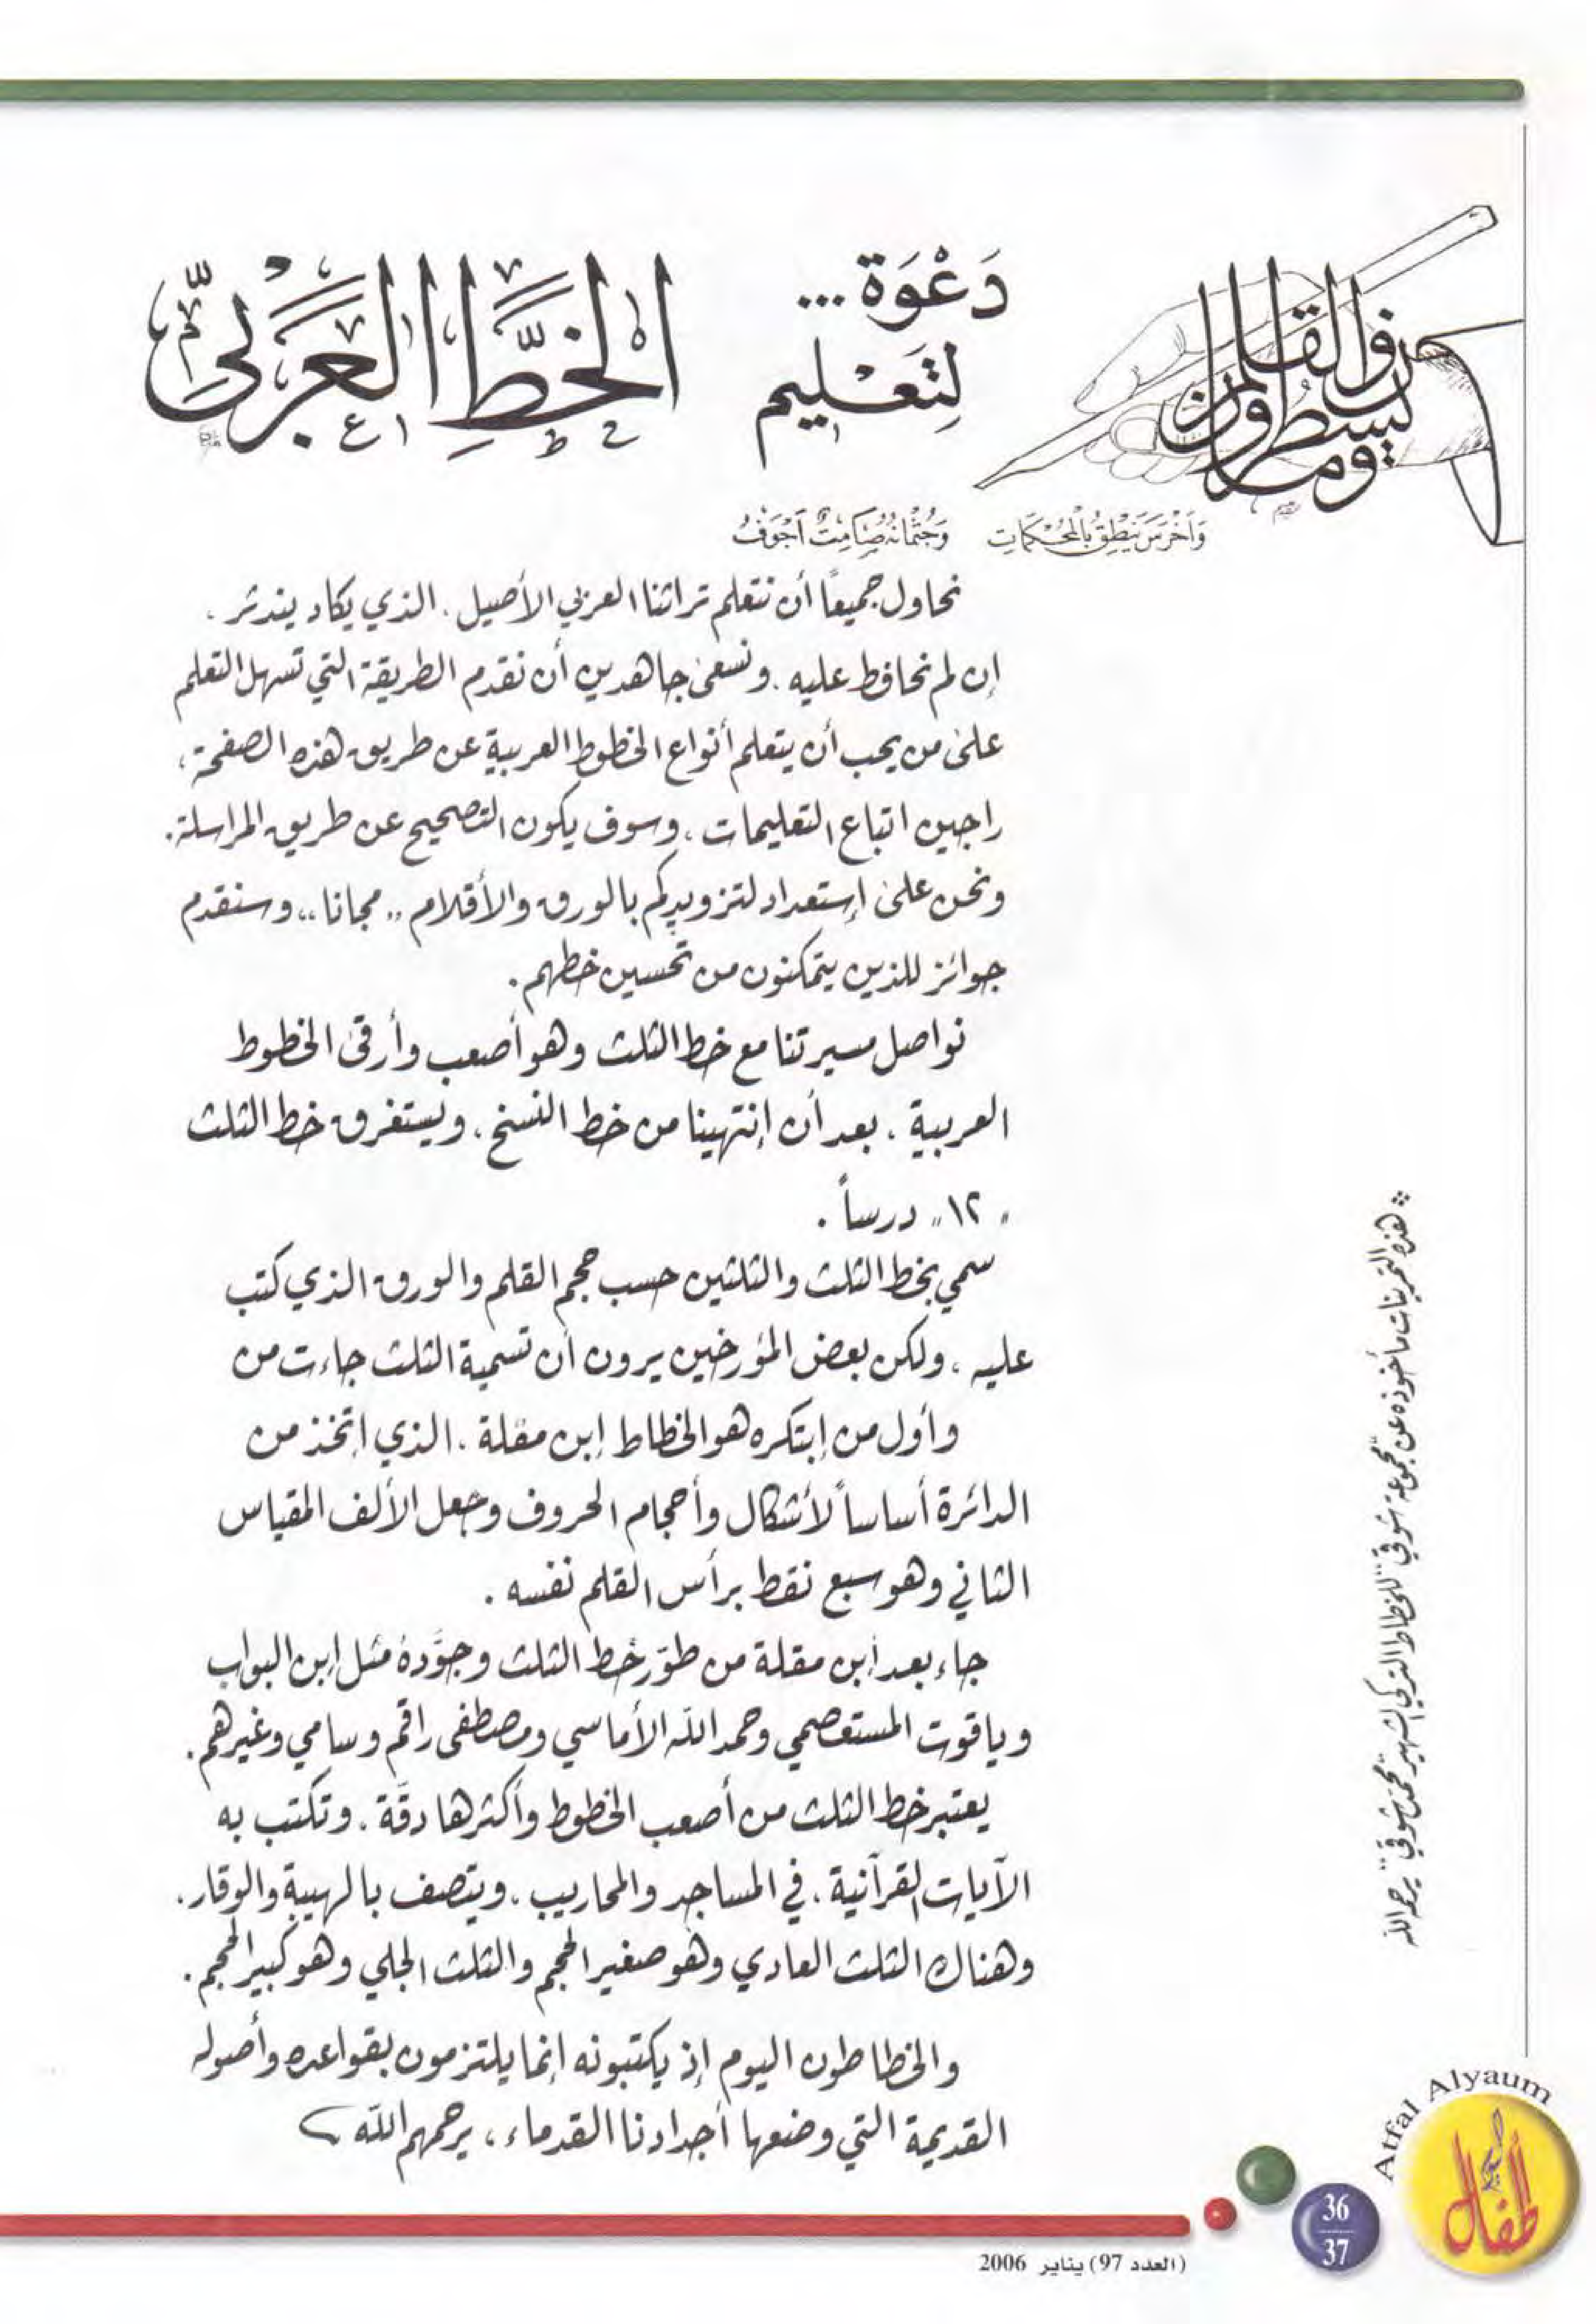 ن والقلم وما يسطرون
دَعْوَة ...
لِتَعْليم
الخَطِّ العَرَبيّ
وَأَخْرَسَ يَنْطِقُ بِالمُحْكَمَاتِ وَجُثْمَانُهُ صَامِتٌ أَجْوَفُ
نحاول جميعاً أن نتعلم تراثنا العربي الأصيل . الذي يكاد يندثر .
إن لم نحافظ عليه . ونسعى جاهدين أن نقدم الطريقة التي تسهل التعلم
على من يحب أن يتعلم أنواع الخطوط العربية عن طريق هذه الصفحة ،
راجين اتباع التعليمات ، وسوف يكون التصحيح عن طريق المراسلة .
ونحن على إستعداد لتزويدكم بالورق والأقلام ,, مجانا ,, وسنقدم
جوائز للذين يتمكنون من تحسين خطهم .
نواصل مسيرتنا مع خط الثلث وهو أصعب وأرقى الخطوط
العربية ، بعد أن إنتهينا من خط النسخ ، ويستغرق خط الثلث
,, ١٢ ,, درساً .
سمي بخط الثلث والثلثين حسب حجم القلم والورق الذي كتب
عليه ، ولكن بعض المؤرخين يرون أن تسمية الثلث جاءت من
وأول من إبتكره هو الخطاط إبن مقلة . الذي إتخذ من
الدائرة أساساً لأشكال وأحجام الحروف وجعل الألف المقياس
الثاني وهو سبع نقط برأس القلم نفسه .
جاء بعد أبن مقلة من طوّر خط الثلث وجوَّدهُ مثل إبن البواب
وياقوت المستعصمي وحمد الله الأماسي ومصطفى راقم وسامي وغيرهم .
يعتبر خط الثلث من أصعب الخطوط وأكثرها دقّة . وتكتب به
الآيات القرآنية . في المساجد والمحاريب . ويتصف بالهيبة والوقار .
وهناك الثلث العادي وهو صغير الحجم والثلث الجلي وهو كبير الحجم .
والخطاطون اليوم إذ يكتبونه إنما يلتزمون بقواعده وأصوله
القديمة التي وضعها أجدادنا القدماء ، يرحمهم الله
هذه التمرينات مأخوذة عن "مجموعة شوقي" للخطاط التركي الشهير "محمد شوقي" يرحمه الله
Atfal Alyaum
أطفال اليوم
36
37
(العدد 97) يناير 2006